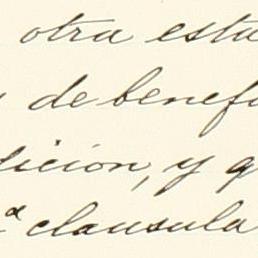 otra esta
de benef
dición, y q
ª clausula